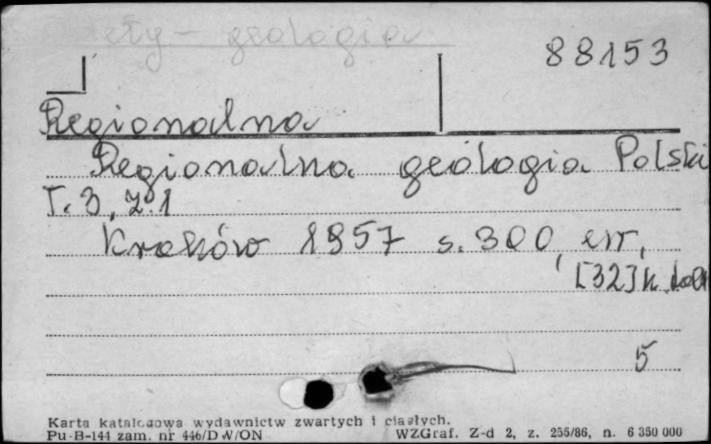 geologia
88153
Regionalna
Regionalna geologia Polski
T. 3, z. 1
Kraków 1957 s. 300, err,
[32] k. dod.
5
Karta katalogowa wydawnictw zwartych i ciągłych.
Pu-B-144 zam. nr 446/DW/ON WZGraf. Z-d 2, z. 255/86, n. 6 350 000